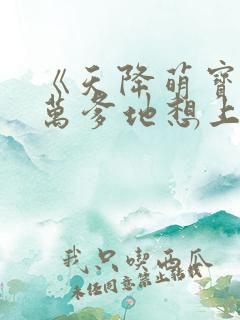 《天降萌寶
萬爹地想上
我只喫西瓜
未经同意禁止转载